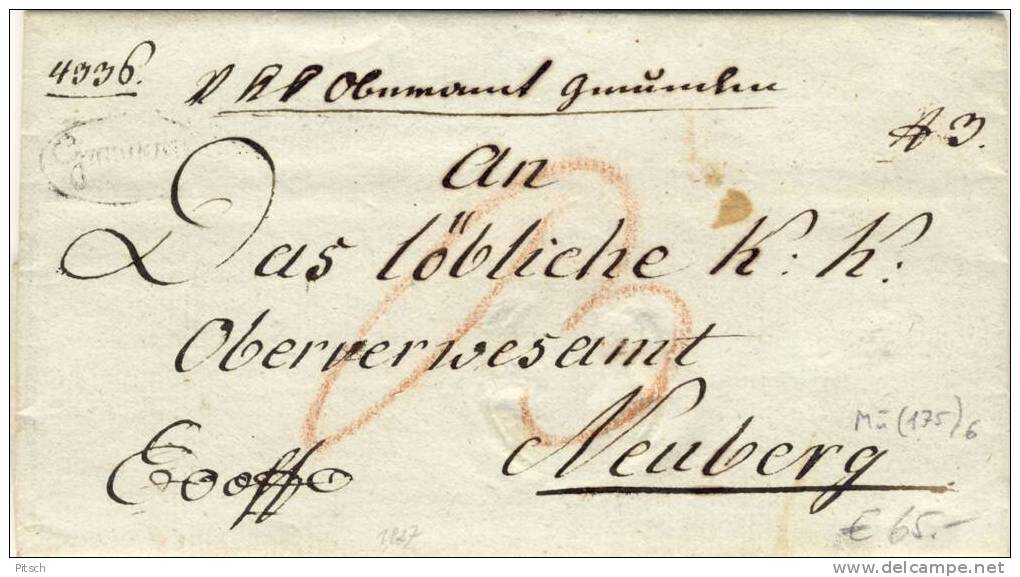 4336.
Obernamt Gmunden
3.
An
Das löbliche K: K:
Oberverwesamt
Neuberg
Exoffo
Mü (175) 6
1827
€ 65.-
Pitsch
delcampe.net